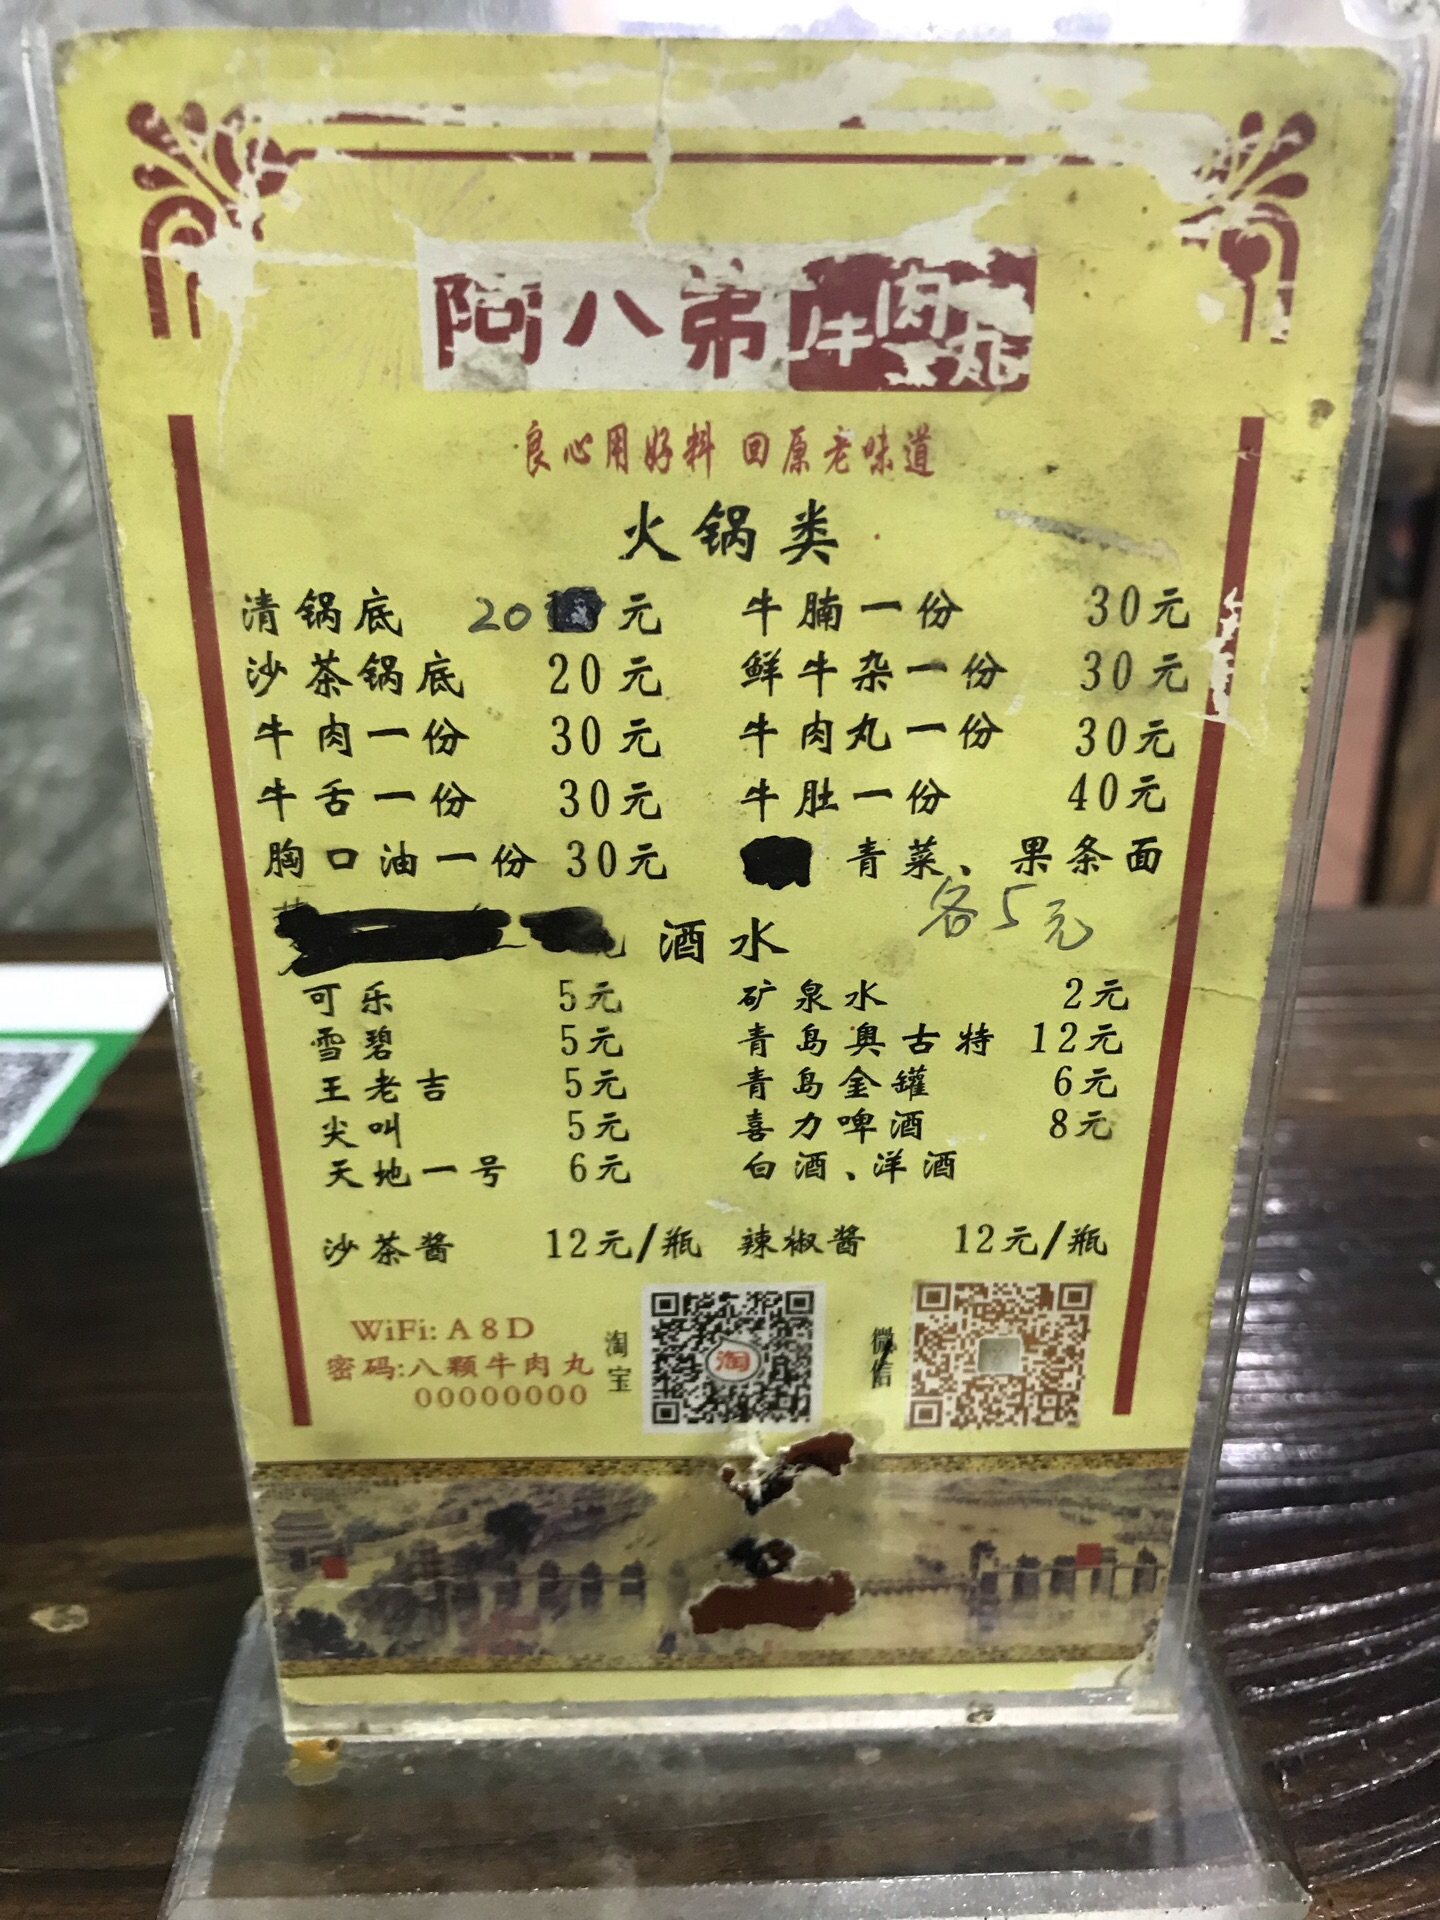 阿八弟牛肉丸
良心用好料 回原老味道
火锅类
清锅底 20元 牛腩一份 30元
沙茶锅底 20元 鲜牛杂一份 30元
牛肉一份 30元 牛肉丸一份 30元
牛舌一份 30元 牛肚一份 40元
胸口油一份 30元 青菜、果条面
各5元
酒水
可乐 5元 矿泉水 2元
雪碧 5元 青岛奥古特 12元
王老吉 5元 青岛金罐 6元
尖叫 5元 喜力啤酒 8元
天地一号 6元 白酒、洋酒
沙茶酱 12元/瓶 辣椒酱 12元/瓶
WiFi: A8D
密码:八颗牛肉丸
00000000
淘宝
淘
微信